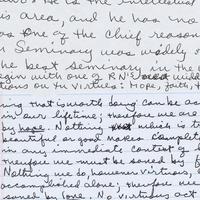 He is the intellectual
is area, and he has no
as one of the chief reason
Seminary was widely
he best seminary in the
egin with one of RN's
ions on the virtues: Hope, faith, +
hing that is worth doing can be a
in our lifetime; therefore we are
by hope. Nothing which is t
beautiful or good makes complet
in any immediate context of
therefore we must be saved by f
Nothing we do, however virtuous,
accomplished alone; therefore we
saved by love. No virtuous act